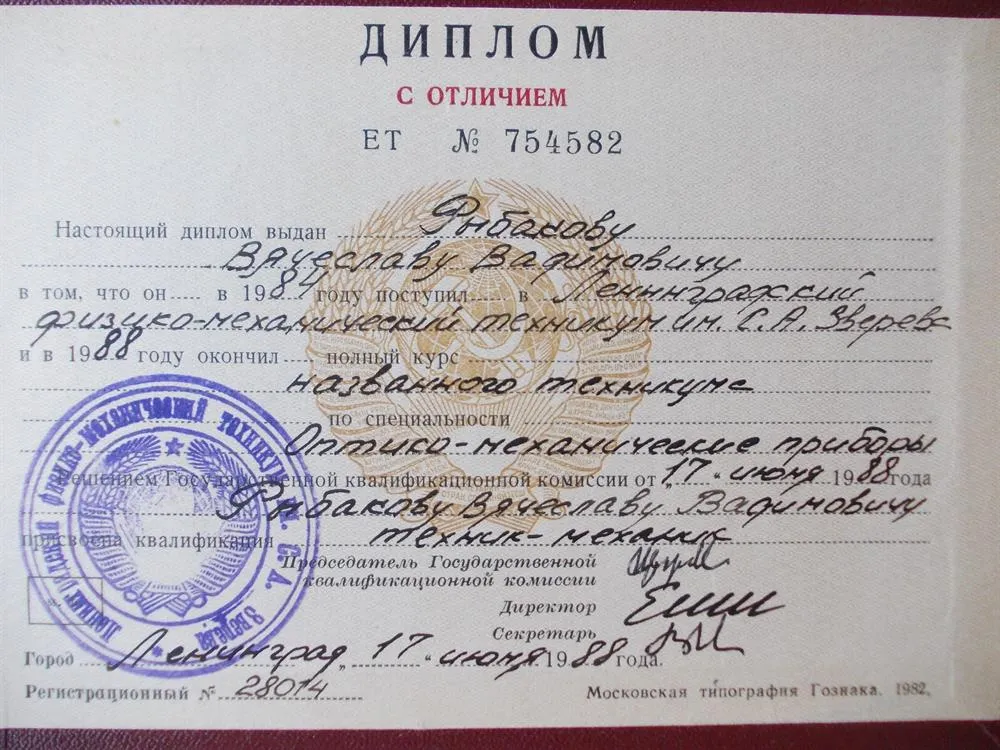 ДИПЛОМ
С ОТЛИЧИЕМ
ЕТ № 754582
Настоящий диплом выдан Рыбакову
Вячеславу Вадимовичу
в том, что он в 1984 году поступил в Ленинградский
физико-механический техникум им. С.А. Зверева
и в 1988 году окончил полный курс
названного техникума
по специальности
Оптико-механические приборы
Решением Государственной квалификационной комиссии от "17" июня 1988 года
Рыбакову Вячеславу Вадимовичу
присвоена квалификация техник-механик
Председатель Государственной
квалификационной комиссии
Директор
Секретарь
Город Ленинград "17" июня 1988 года.
Регистрационный № 28014
Московская типография Гознака. 1982.
Ленинградский физико-механический техникум им. С. А. Зверева